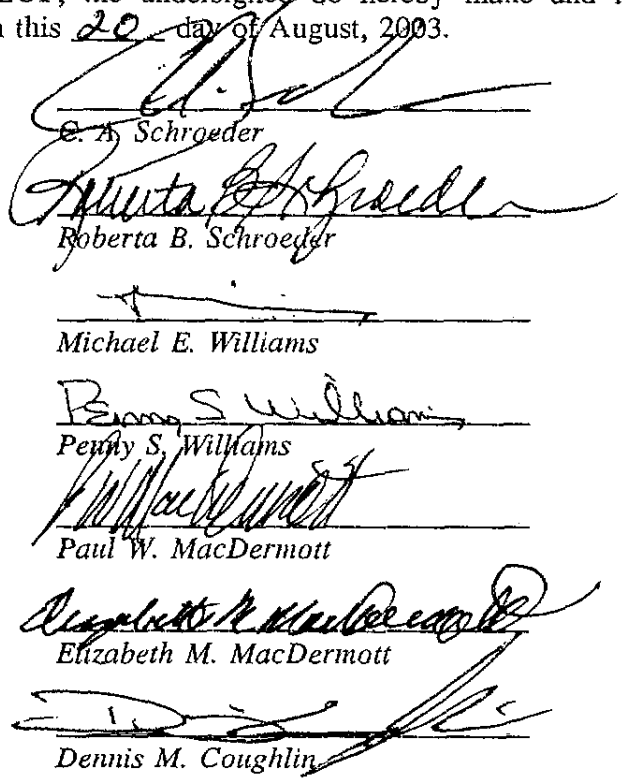 the undersigned do hereby make and
this 20 day of August, 2003.
C. A. Schroeder
Roberta B. Schroeder
Roberta B. Schroeder
Michael E. Williams
Penny S Williams
Penny S. Williams
Paul W. MacDermott
Elizabeth M. MacDermott
Elizabeth M. MacDermott
Dennis M. Coughlin